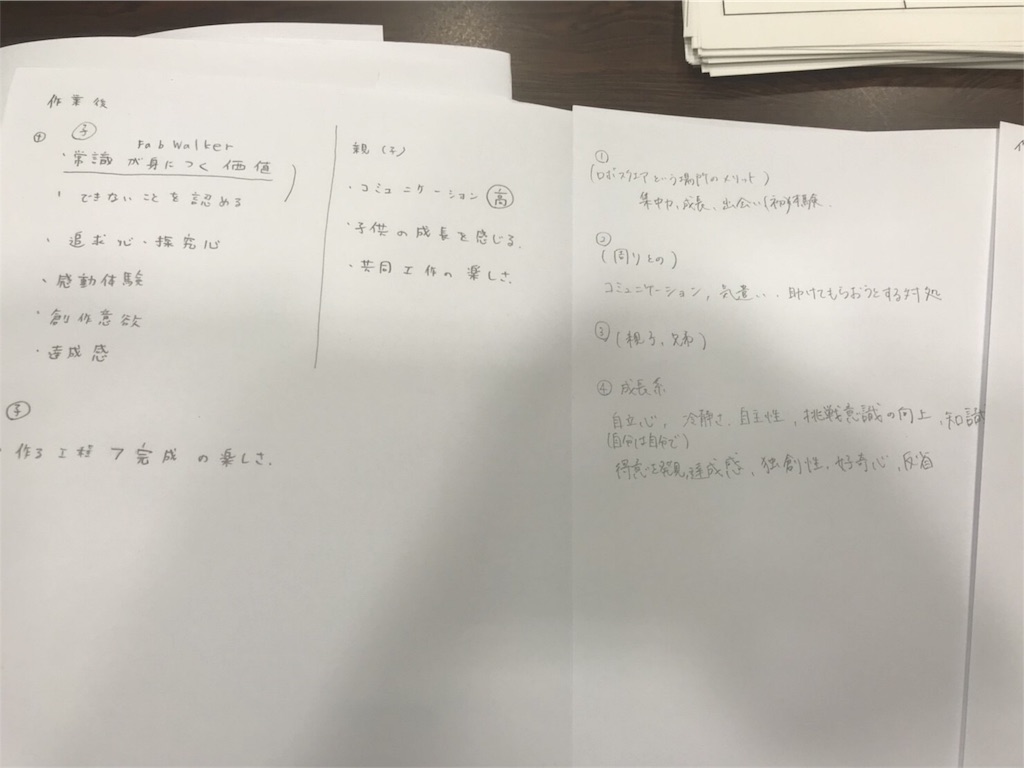 作業後
① 子
Fab Walker
・常識が身につく価値
・できないことを認める
・追求心・探究心
・感動体験
・創作意欲
・達成感
子
・作る工程 完成の楽しさ.
親(子)
・コミュニケーション 高
・子供の成長を感じる.
・共同工作の楽しさ.
①
(ロボスクエアという場所のメリット)
集中力、成長、出会い(初めての体験
②
(周りとの)
コミュニケーション, 気遣い、助けてもらおうとする対処
③ (親子、兄弟)
④ 成長系
自立心, 冷静さ、自主性, 挑戦意識の向上, 知識
(自分は自分で)
得意を発見, 達成感, 独創性, 好奇心, 反省